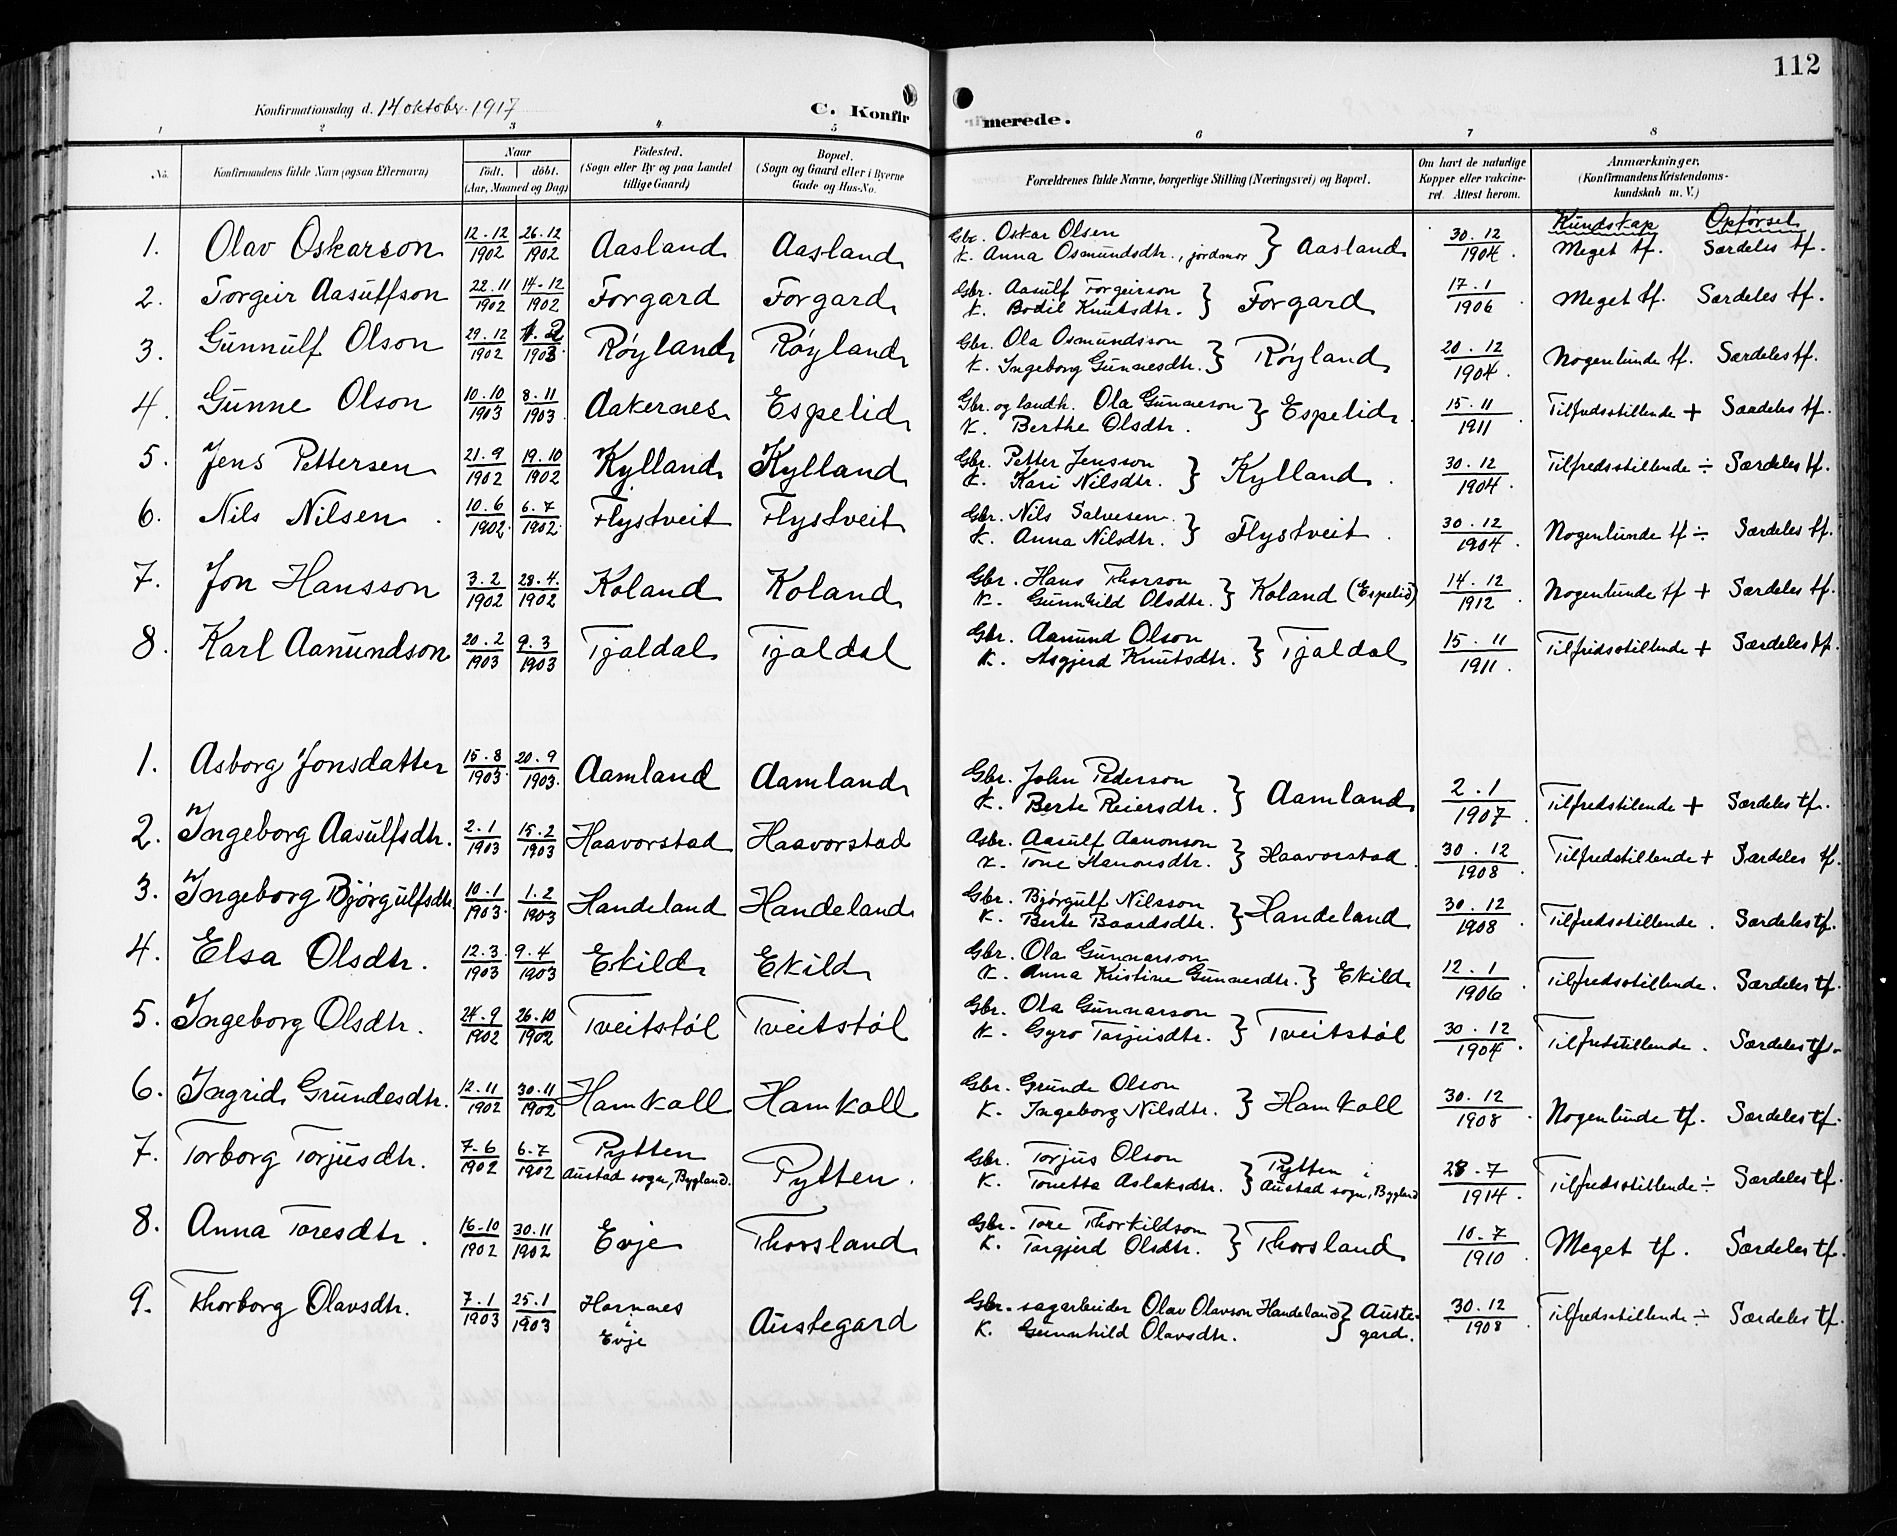 112
Konfirmationsdag d. 14 oktober 1917
C. Konfir
merede.
1 2 3 4 5 6 7 8
No.
Konfirmandens fulde Navn (ogsaa Efternavn)
Naar
født. døbt.
(Aar, Maaned og Dag)
Fødested.
(Sogn eller By og paa Landet
tillige Gaard)
Bopæl.
(Sogn og Gaard eller i Byerne
Gade og Hus-No.
Forældrenes fulde Navne, borgerlige Stilling (Næringsvei) og Bopæl.
Om havt de naturlige
Kopper eller vakcine-
ret. Attest herom.
Anmærkninger,
(Konfirmandens Kristendoms-
kundskab m. V.)
Kundskap Opførsel
1. Olav Oskarson 12.12/1902 26.12/1902 Aasland Aasland Gbr. Oskar Olsen
K. Anna Osmundsdtr., jordmor } Aasland 30.12/1904. Meget tf. Særdeles tf.
2. Torgeir Aasulfson 22.11/1902 14-12/1902 Forgard Forgard Gbr. Aasulf Torgeirson
K. Bodil Knutsdtr. } Forgard 17.1/1906 Meget tf. Særdeles tf.
3. Gunnulf Olson 29.12/1902 1.2/1903. Røyland Røyland Gbr. Ola Osmundsson
K. Ingeborg Gunnesdtr. } Røyland 20.12/1904. Nogenlunde tf. Særdeles tf.
4. Gunne Olson 10.10/1903 8.11/1903. Aakernes Espelid Gbr. og landh. Ola Gunneson
K. Berthe Olsdtr. } Espelid. 15.11/1911 Tilfredsstillende + Særdeles tf.
5. Jens Pettersen 21.9/1902 19.10/1902 Kylland Kylland Gbr. Petter Jensson
K. Kari Nilsdtr. } Kylland. 30.12/1904. Tilfredsstillende ÷ Særdeles tf.
6. Nils Nilsen. 10.6/1902. 6.7/1902. Flystveit Flystveit Gbr. Nils Salvesen
K. Anna Nilsdtr. } Flystveit. 30.12/1904. Nogenlunde tf ÷ Særdeles tf.
7. Jon Hansson 3.2/1902 28.4./1902 Koland Koland Gbr. Hans Thorson
K. Gunnhild Olsdtr. } Koland (Espelid) 14.12/1912. Nogenlunde tf + Særdeles tf.
8. Karl Aanundson 20.2/1903 9.3/1903 Tjaldal Tjaldal Gbr. Aanund Olson
K. Asgjerd Knutsdtr. } Tjaldal 15.11/1911. Tilfridsstillende + Særdeles tf.
1. Asborg Jonsdatter 15.8/1903. 20.9/1903. Aamland Aamland Gbr. John Pederson
K. Berte Reiersdtr. } Aamland 2.1/1907. Tilfredstilende + Særdeles tf.
2. Ingeborg Aasulfsdtr. 2.1/1903 15.2/1903 Haavorstad Haavorstad Gbr. Aasulf Aanonson
K. Tone Hanonsdtr. } Haavorstad. 30.12/1908. Tilfredstillende + Særdeles tf.
3. Ingeborg Bjørgulfsdtr. 10.1/1903. 1.2/1903 Handeland Handeland Gbr. Bjørgulf Nilsson
K. Berte Baardsdtr. } Handeland 30.12/1908. Tilfredsstillende. Særdeles tf.
4. Elsa Olsdtr. 12.3/1903 9.4/1903 Ekild Ekild Gbr. Ola Gunnarson
K. Anna Kristine Gunnesdtr. } Ekild 12.1/1906. Tilfredsstillende. Særdeles tf.
5. Ingeborg Olsdtr. 24.9/1902 26.10/1902 Tveitstøl Tveitstøl Gbr. Ola Gunnarson
K. Gyro Tarjeisdtr. } Tveitstøl 30.12/1904. Tilfredstillende. Særdeles tf.
6. Ingrid Grundesdtr. 12.11/1902 30.11/1902 Hamkoll Hamkoll Gbr. Grunde Olson
K. Ingeborg Nilsdtr. } Hamkoll 30.12/1908. Nogenlunde tf. Særdeles tf.
7. Torborg Torjusdtr. 7.6/1902 6.7/1902 Pytten
Austad sogn, Bygland. Pytten. Gbr. Torjus Olson
K. Tonetta Aslaksdtr. } Pytten i
Austad sogn, Bygland 28.7/1914. Tilfredsstillende ÷ Særdeles tf.
8. Anna Toresdtr. 16-10/1902 30.11/1902 Evje Thorsland Gbr. Tore Thorkildson
K. Torgjerd Olsdtr. } Thorsland 10.7/1910 Meget tf. Særdeles tf.
9. Thorborg Olavsdtr. 7.1/1903 25.1/1903 Hornnes
i
Evje Austegard Gbr. sagarbeider Olav Olavson Handeland
K. Gunnhild Olavsdtr. } Auste-
gard. 30.12/1908. Tilfredsstillende ÷ Særdeles tf.